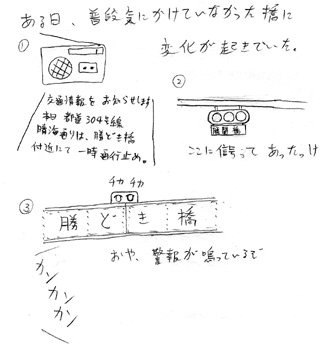 ある日、普段気にかけていなかった橋に
変化が起きていた。
①
交通情報をお知らせします
本日 都道304号線
晴海通りは、勝どき橋
付近にて一時通行止め。
②
ここに信号ってあったっけ
③
チカ チカ
勝どき橋
おや、警報が鳴っているぞ
カン
カン
カン